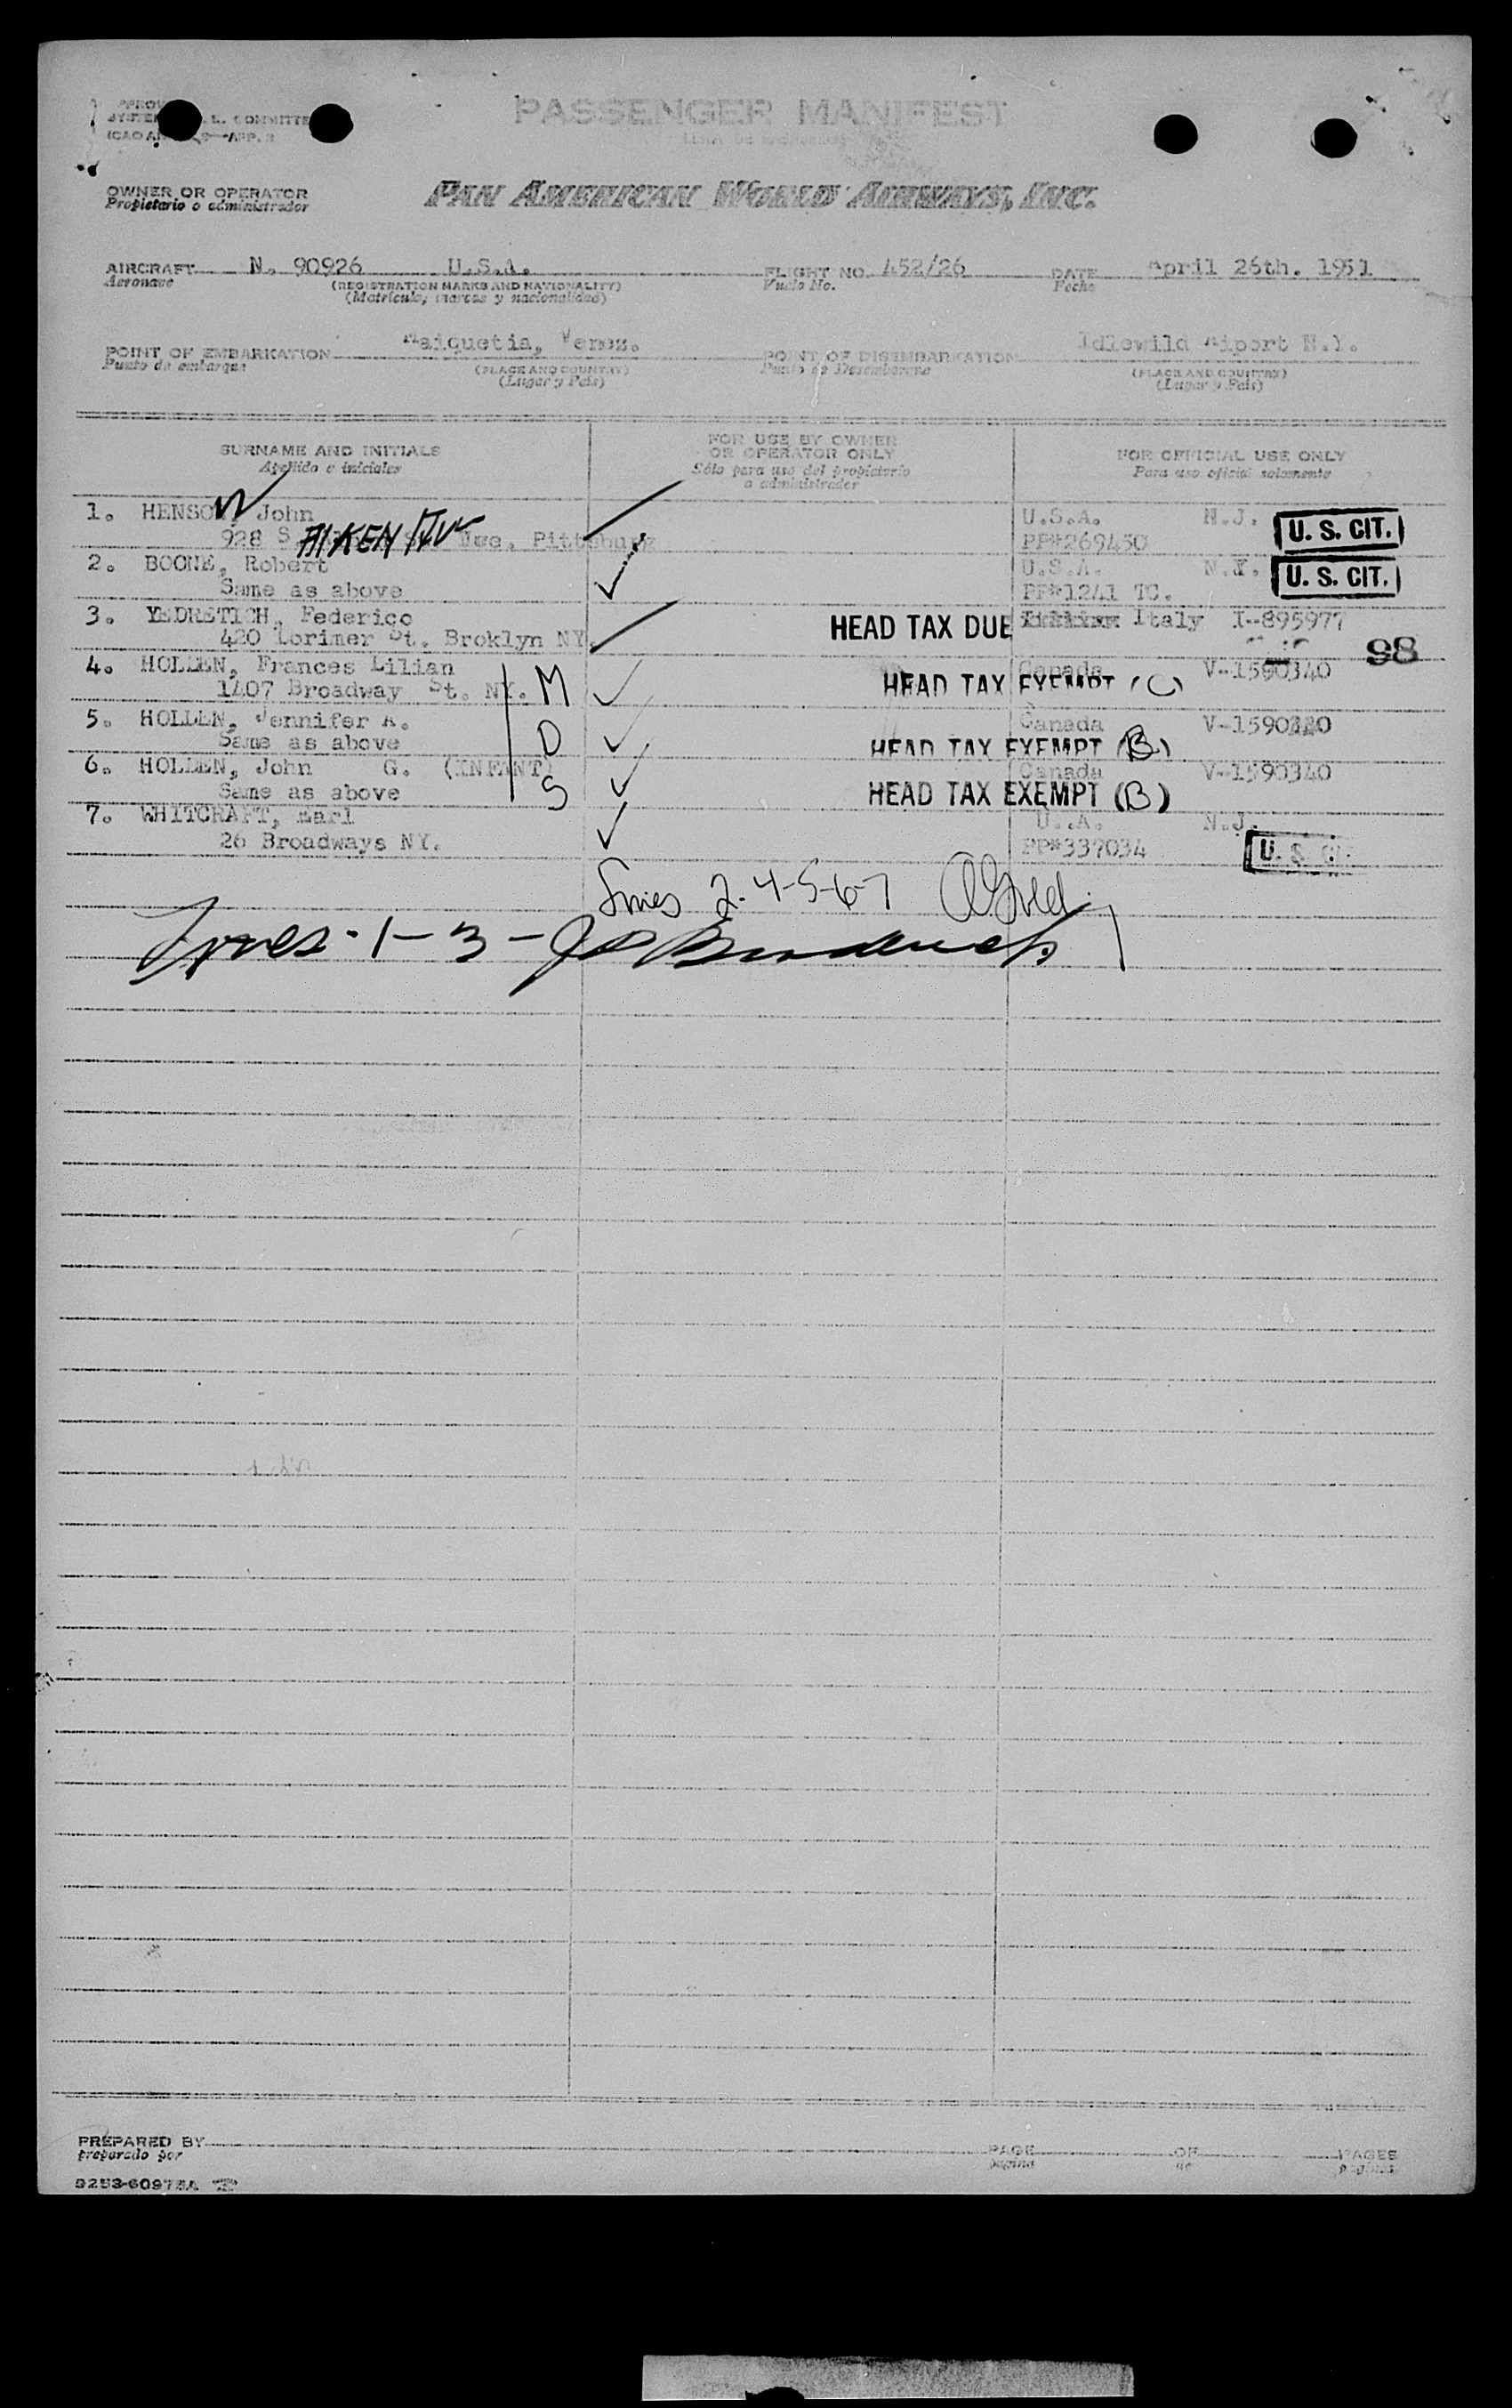 PASSENGER MANIFEST
OWNER OR OPERATOR
Propietario o administrador
PAN AMERICAN WORLD AIRWAYS, INC.
AIRCRAFT N. 90926 U.S.A. FLIGHT NO. 452/26 DATE April 26th. 1951
Aeronave (REGISTRATION MARKS AND NATIONALITY) Vuelo No. Fecha
(Matrícula, marcas y nacionalidad)
POINT OF EMBARKATION Maiquetia, Venez. POINT OF DISEMBARKATION Idlewild Aiport N.Y.
Punto de embarque (PLACE AND COUNTRY) Punto de Desembarque (PLACE AND COUNTRY)
(Lugar y País) (Lugar y País)
SURNAME AND INITIALS FOR USE BY OWNER OR OPERATOR ONLY FOR OFFICIAL USE ONLY
Apellido e iniciales Sólo para uso del propietario o administrador Para uso oficial solamente
1. HENSON, John U.S.A. N.J. U. S. CIT.
928 S. AIKEN AV Ave. Pittsburg PP#269450
2. BOONE, Robert U.S.A. N.Y. U. S. CIT.
Same as above PP#1241 TC.
3. YEDRETICH, Federico HEAD TAX DUE Italy I-895977
420 Lorimer St. Broklyn NY. 98
4. HOLLEN, Frances Lilian Canada V-1590340
1407 Broadway St. NY. M HEAD TAX EXEMPT (C)
5. HOLLEN, Jennifer A. Canada V-1590340
Same as above D HEAD TAX EXEMPT (B)
6. HOLLEN, John G. (INFANT) Canada V-1590340
Same as above S HEAD TAX EXEMPT (B)
7. WHITCRAFT, Earl U.S.A. N.J.
26 Broadways NY. PP#337034 U. S. CIT.
Lines 2-4-5-6-7
Lines-1-3-
PREPARED BY PAGE OF PAGES
preparado por página de páginas